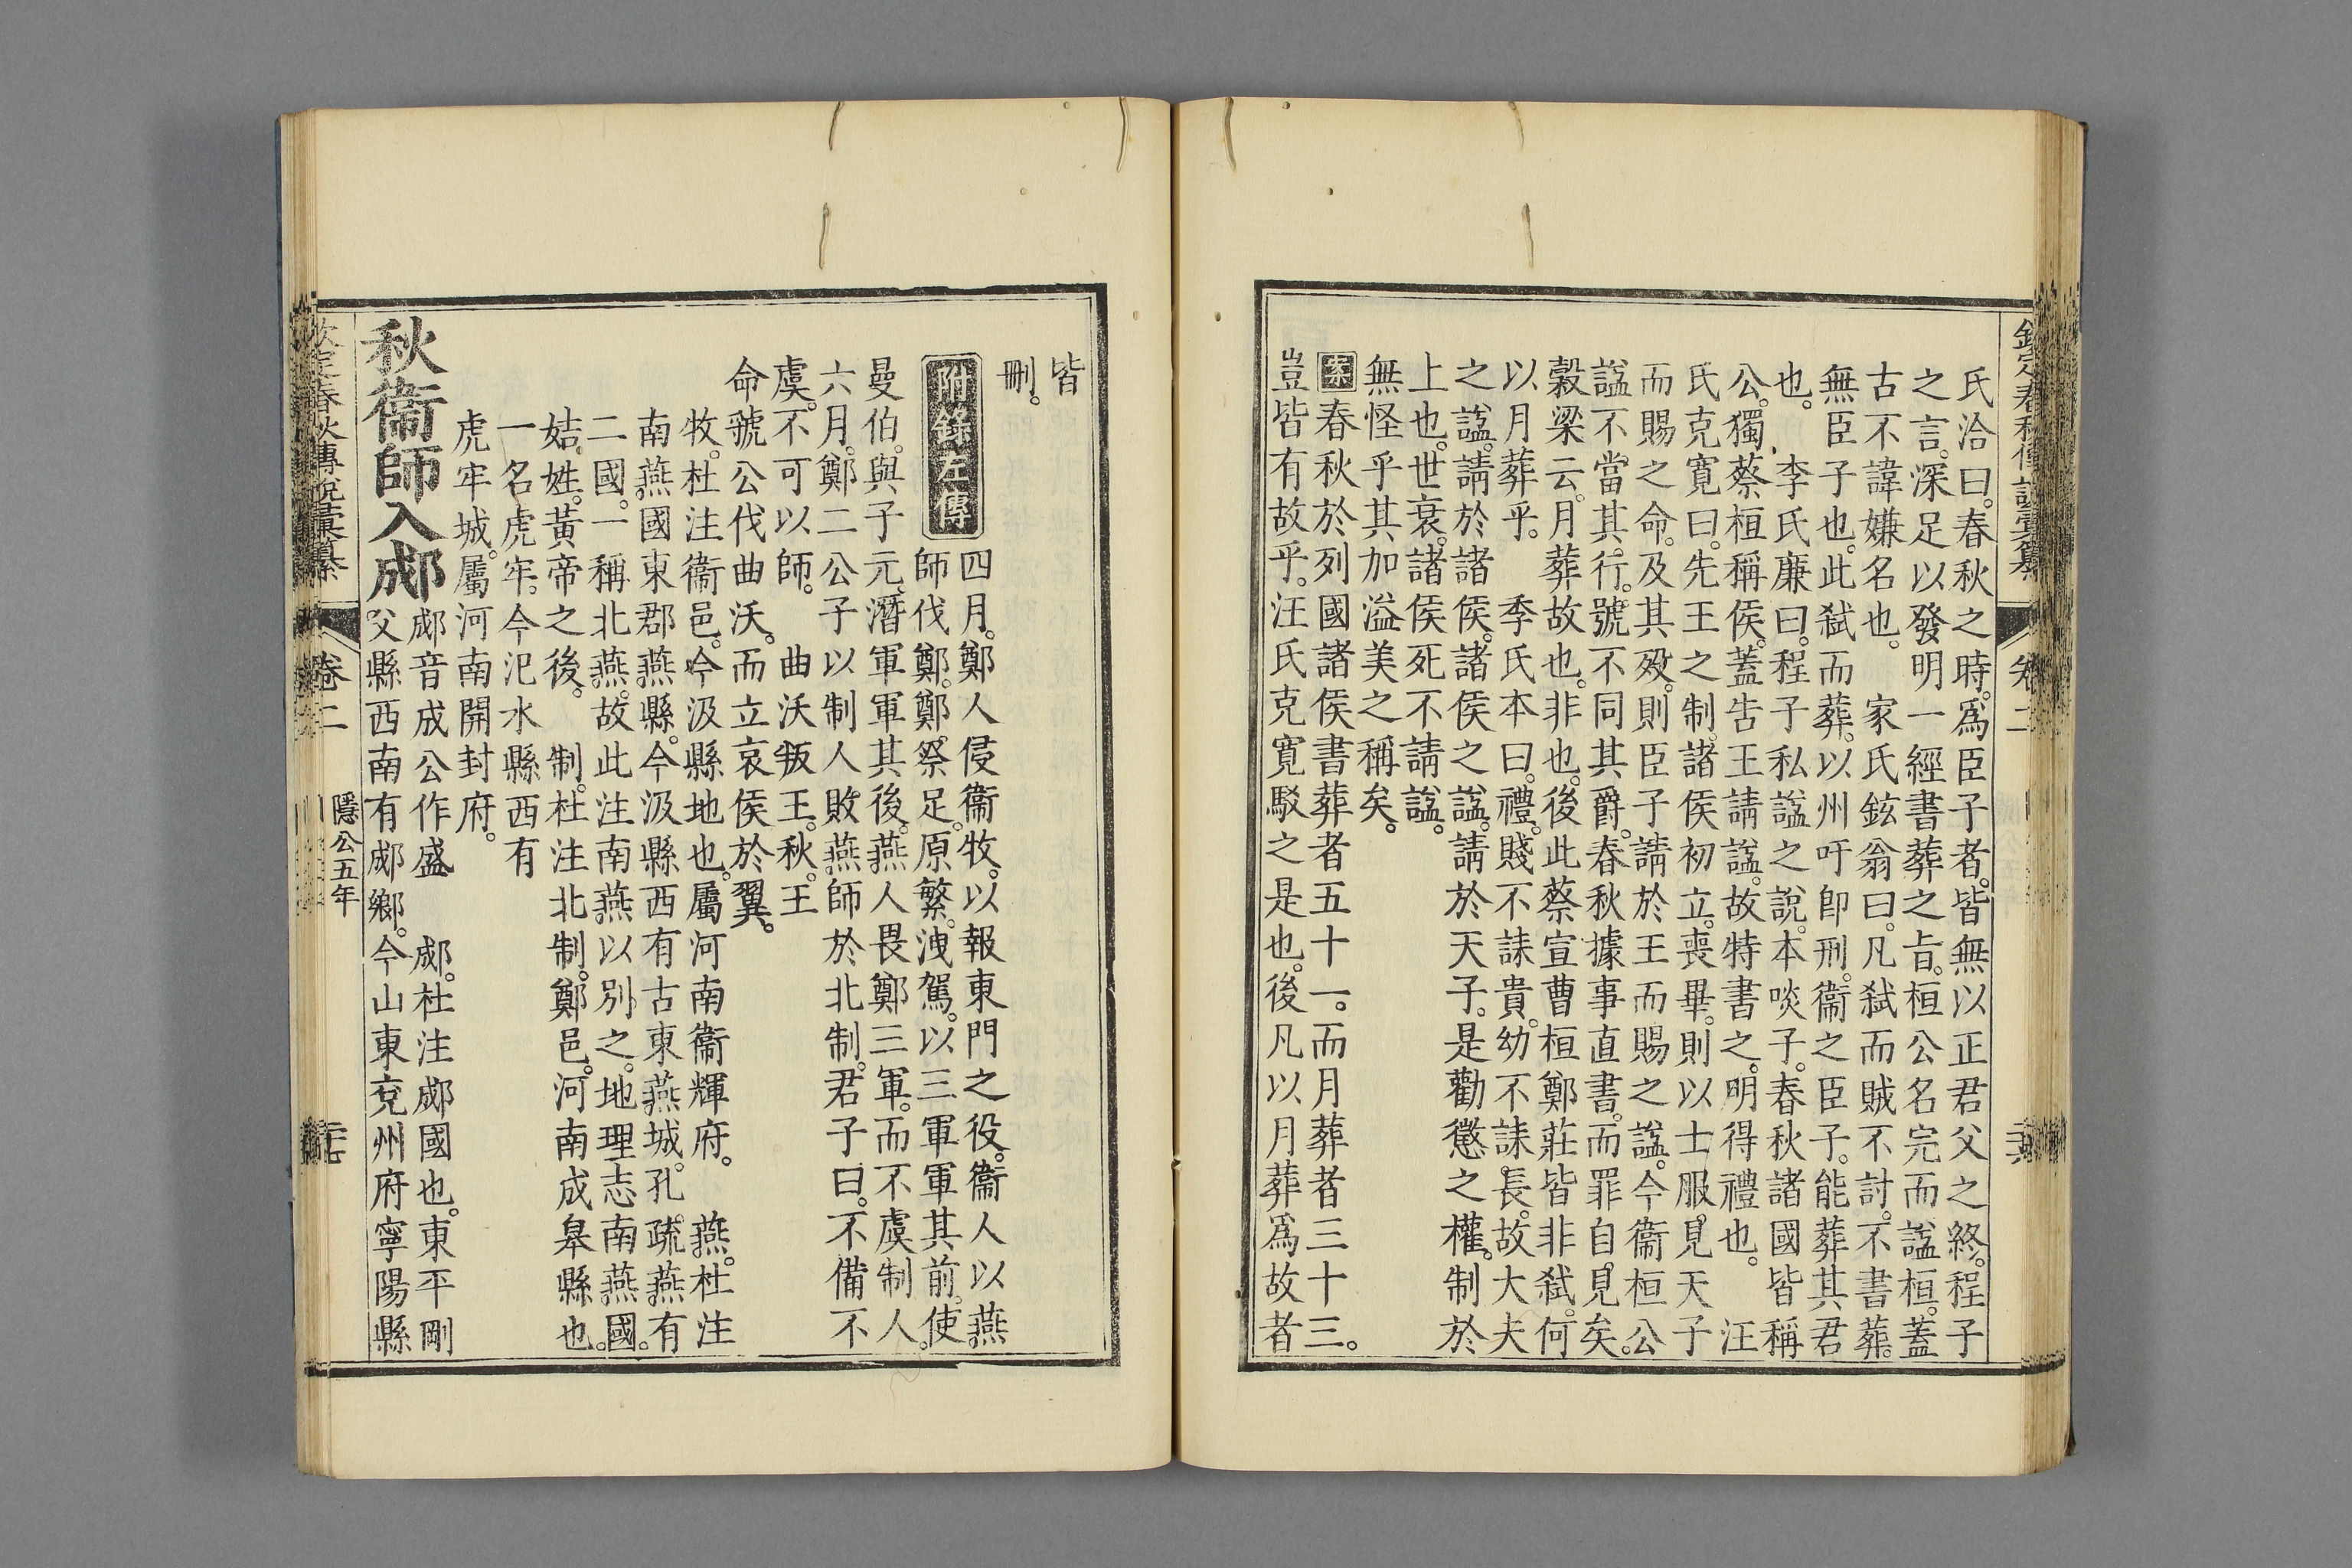 欽定春秋傳說彙纂 卷二
氏洽曰。春秋之時。爲臣子者。皆無以正君父之終。程子
之言。深足以發明一經書葬之旨。桓公名完而謚桓。蓋
古不諱嫌名也。　家氏鉉翁曰。凡弑而賊不討。不書葬。
無臣子也。此弑而葬。以州吁卽刑。衞之臣子。能葬其君
也。　李氏廉曰。程子私謚之說。本啖子。春秋諸國皆稱
公。獨蔡桓稱侯。蓋告王請謚。故特書之。明得禮也。　汪
氏克寬曰。先王之制。諸侯初立。喪畢。則以士服。見天子
而賜之命。及其歿。則臣子請於王而賜之謚。今衞桓公
謚不當其行。號不同其爵。春秋據事直書。而罪自見矣。
穀梁云。月葬故也。非也。後此蔡宣曹桓鄭莊皆非弑。何
以月葬乎。　季氏本曰。禮。賤不誄貴。幼不誄長。故大夫
之謚。請於諸侯。諸侯之謚。請於天子。是勸懲之權。制於
上也。世衰。諸侯死不請謚。
無怪乎其加溢美之稱矣。
案春秋於列國諸侯書葬者五十一。而月葬者三十三。
豈皆有故乎。汪氏克寬駁之是也。後凡以月葬爲故者
皆
刪。
附錄左傳四月。鄭人侵衞牧。以報東門之役。衞人以燕
師伐鄭。鄭。祭足。原繁。洩駕。以三軍軍其前。使
曼伯。與子元。潛軍軍其後。燕人畏鄭三軍。而不虞制人。
六月。鄭二公子以制人。敗燕師於北制。君子曰。不備不
虞。不可以師。　曲沃叛王。秋。王
命虢公伐曲沃。而立哀侯於翼。
牧。杜注衞邑。今汲縣地也。屬河南衞輝府。　燕。杜注
南燕。國東郡燕縣。今汲縣西有古東燕城。孔疏。燕有
二國。一稱北燕。故此注南燕以別之。地理志南燕國。
姞。姓。黃帝之後。　制。杜注北制。鄭邑。河南成皋縣也。
一名虎牢。今汜水縣西有
虎牢城。屬河南開封府。
秋衞師入郕郕音成公作盛　郕。杜注郕國也。東平剛
父縣西南有郕鄉。今山東兗州府寧陽縣
欽定春秋傳說彙纂 卷二 隱公五年 二十七